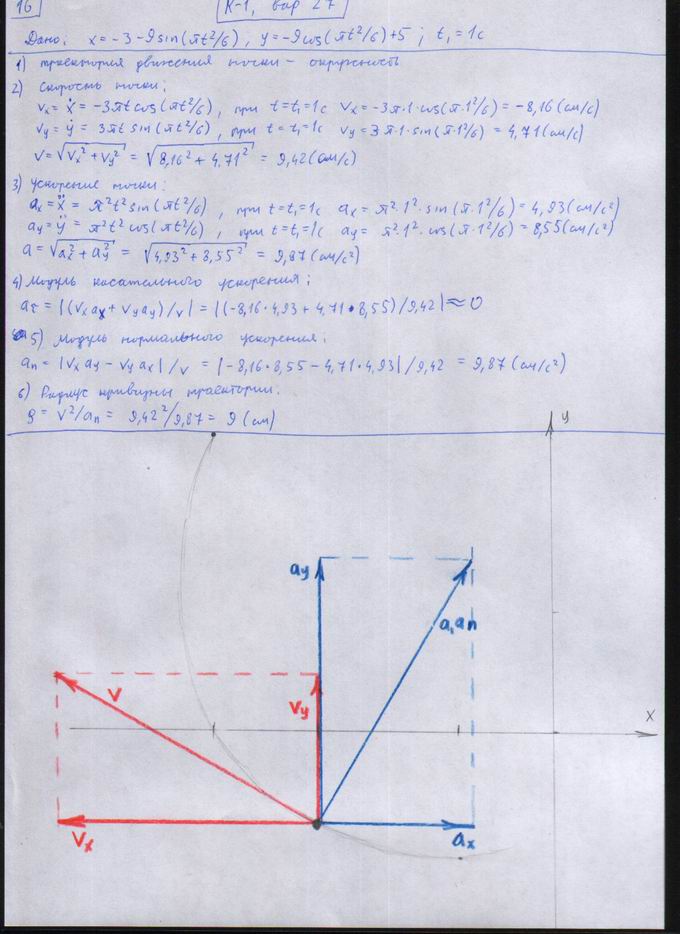 16
К-1, вар 27
Дано: x = -3 - 9 sin(πt²/6), y = -9 cos(πt²/6) + 5; t₁ = 1c
1) траектория движения точки - окружность
2) Скорость точки:
Vx = ẋ = -3πt cos(πt²/6), при t=t₁=1c Vx = -3π·1·cos(π·1²/6) = -8,16(см/c)
Vy = ẏ = 3πt sin(πt²/6), при t=t₁=1c Vy = 3π·1·sin(π·1²/6) = 4,71(см/c)
V = √Vx² + Vy² = √8,16² + 4,71² = 9,42(см/c)
3) Ускорение точки:
ax = ẍ = π²t² sin(πt²/6), при t=t₁=1c ax = π²·1²·sin(π·1²/6) = 4,93(см/c²)
ay = ÿ = π²t² cos(πt²/6), при t=t₁=1c ay = π²·1²·cos(π·1²/6) = 8,55(см/c²)
a = √ax² + ay² = √4,93² + 8,55² = 9,87(см/c²)
4) Модуль касательного ускорения:
aτ = |(Vx ax + Vy ay)/V| = |(-8,16·4,93 + 4,71·8,55)/9,42| ≈ 0
5) Модуль нормального ускорения:
an = |Vx ay - Vy ax|/V = |-8,16·8,55 - 4,71·4,93|/9,42 = 9,87(см/c²)
6) Радиус кривизны траектории.
ρ = V²/an = 9,42²/9,87 = 9(см)
y
ay
a, an
V
Vy
x
Vx
ax